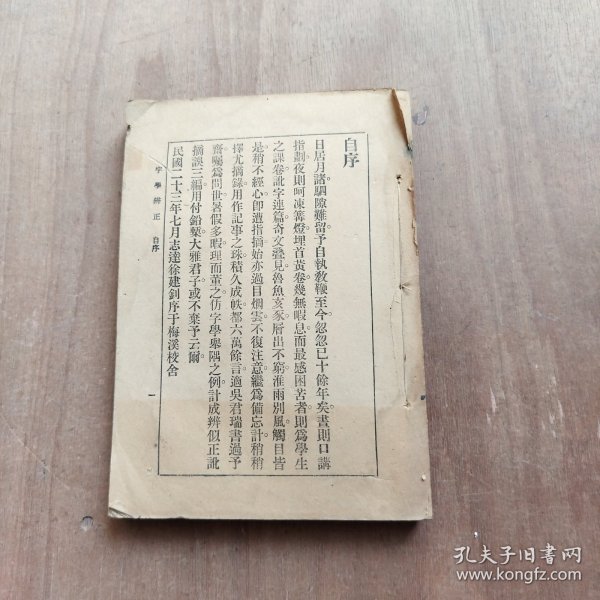 自序
日居月諸。駟隙難留。予自執敎鞭至今。忽忽已十餘年矣。晝則口講
指劃。夜則呵凍篝燈。埋首黃卷。幾無暇息。而最感困苦者。則爲學生
之課卷。訛字連篇。奇文疊見。魯魚亥豕。層出不窮。淮雨別風。觸目皆
是。稍不經心。卽遭指摘。始亦過目烟雲。不復注意。繼爲備忘計。稍稍
擇尤摘錄。用作記事之珠。積久成帙。都六萬餘言。適吳君瑞書過予
齋。囑爲問世。暑假多暇。理而董之。仿字學舉隅之例。計成辨似正訛
摘誤三編。用付鉛槧。大雅君子。或不棄予云爾。
民國二十三年七月志達徐建釗序于梅溪校舍
字學辨正 自序
一
孔夫子旧书网
www.kongfz.com